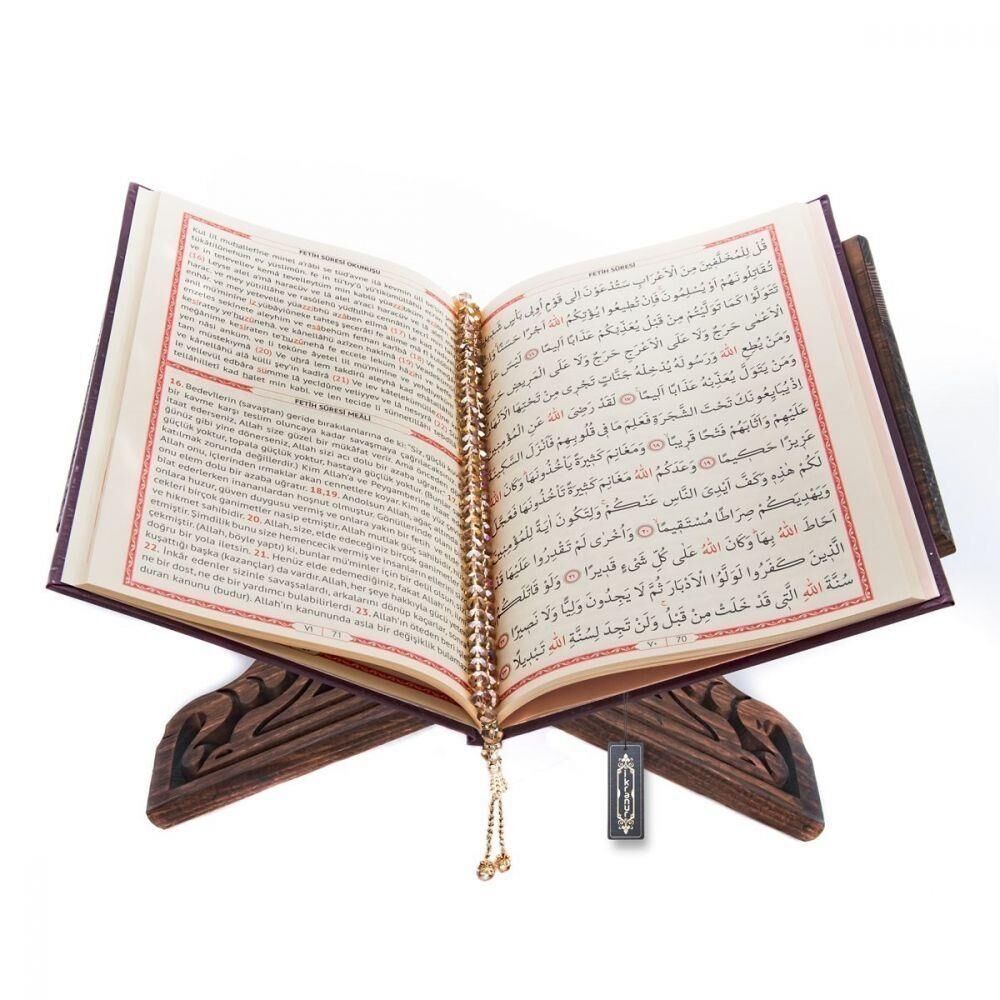 FETİH SÛRESİ OKUNUŞU
Kul lil muḥallefîne minel a'râbi se tüd'avne ilâ kavmin ulî
tükâtilûnehüm ev yüslimûn. fe in tü'tıy'û yü'tikümullâhü
ve in tetevellev kemâ tevelleytüm min kablü
(16) Leyse alel a'mâ haracüv ve lâ alel
harac. ve mey yütıillâhe ve rasûlehû yüdhılhü cennâtin
enhâr. ve mey yetevelle yüazzibhü azâben elîmâ (17)
mü'minîne iz yübâyiûneke tahteş şecerati fe alime mâ fî
enzeles sekînete aleyhim ve esâbehüm fethan karîbâ (18)
kesîratey ye'huzûnehâ. ve kânellâhü azîzen hakîmâ (19)
meğânime kesîraten te'huzûnehâ fe accele leküm hâzihî
tan nâsi anküm. ve li tekûne âyetel lil mü'minîne ve yehdiyeküm
tam müstekıymâ (20) Ve uḥrâ lem takdirû aleyhâ kad ehâ
ve kânellâhü alâ külli şey'in kadîrâ (21) Ve lev kâtelekümüllezîne
vellevül edbâra sümme lâ yecidûne veliyyev ve lâ nesıyrâ
tellâhilletî kad halet min kabl. ve len tecide li sünnetillâhi
FETİH SÛRESİ MEÂLİ
16. Bedevîlerin (savaştan) geride bırakılanlarına de ki: "Siz, güçlü
bir kavme karşı teslim oluncaya kadar savaşmaya çağrılacaksınız.
itaat ederseniz, Allah size güzel bir mükâfat verir. Ama önceden
ğünüz gibi yine dönerseniz, Allah sizi acı dolu bir azaba uğratır."
güçlük yoktur, topala güçlük yoktur, hastaya güçlük yoktur. (Bunlar
katılmak zorunda değillerdir.) Kim Allah'a ve Peygamberine
onu, içlerinden ırmaklar akan cennetlere koyar. Kim de yüz
onu elem dolu bir azaba uğratır. 18,19. Andolsun Allah, ağaç altında
biat ederlerken inananlardan hoşnut olmuştur. Gönüllerinde
onlara huzur, güven duygusu vermiş ve onlara yakın bir fetih
cekleri birçok ganimetler nasip etmiştir. Allah mutlak güç sahibidir,
ve hikmet sahibidir. 20. Allah, size, elde edeceğiniz birçok
etmiştir. Şimdilik bunu size hemencecik vermiş ve insanların ellerini
çekmiştir. (Allah, böyle yaptı) ki, bunlar mü'minler için bir delil
doğru bir yola iletsin. 21. Henüz elde edemediğiniz, fakat Allah'ın
kuşattığı başka (kazançlar) da vardır. Allah, her şeye hakkıyla gücü
22. İnkâr edenler sizinle savaşsalardı, arkalarını dönüp kaçarlar,
ne bir dost, ne de bir yardımcı bulabilirlerdi. 23. Allah'ın öteden beri
duran kanunu (budur). Allah'ın kanununda asla bir değişiklik
٧١ 71
FETİH SÛRESİ
قُلْ لِلْمُخَلَّفٖينَ مِنَ الْاَعْرَابِ سَتُدْعَوْنَ اِلٰى قَوْمٍ اُولٖى بَأْسٍ
تُقَاتِلُونَهُمْ اَوْ يُسْلِمُونَۚ فَاِنْ تُطٖيعُوا يُؤْتِكُمُ اللّٰهُ اَجْرًا حَسَنًاۚ
تَتَوَلَّوْا كَمَا تَوَلَّيْتُمْ مِنْ قَبْلُ يُعَذِّبْكُمْ عَذَابًا اَلٖيمًا ﴿١٦﴾ لَيْسَ
الْاَعْمٰى حَرَجٌ وَلَا عَلَى الْاَعْرَجِ حَرَجٌ وَلَا عَلَى الْمَرٖيضِ
وَمَنْ يُطِعِ اللّٰهَ وَرَسُولَهُ يُدْخِلْهُ جَنَّاتٍ تَجْرٖى مِنْ تَحْتِهَا
وَمَنْ يَتَوَلَّ يُعَذِّبْهُ عَذَابًا اَلٖيمًا ﴿١٧﴾ لَقَدْ رَضِىَ اللّٰهُ عَنِ
اِذْ يُبَايِعُونَكَ تَحْتَ الشَّجَرَةِ فَعَلِمَ مَا فٖى قُلُوبِهِمْ فَاَنْزَلَ
عَلَيْهِمْ وَاَثَابَهُمْ فَتْحًا قَرٖيبًا ﴿١٨﴾ وَمَغَانِمَ كَثٖيرَةً يَأْخُذُونَهَا وَكَانَ
عَزٖيزًا حَكٖيمًا ﴿١٩﴾ وَعَدَكُمُ اللّٰهُ مَغَانِمَ كَثٖيرَةً تَأْخُذُونَهَا فَعَجَّلَ
لَكُمْ هٰذِهٖ وَكَفَّ اَيْدِىَ النَّاسِ عَنْكُمْ وَلِتَكُونَ اٰيَةً لِلْمُؤْمِنٖينَ
وَيَهْدِيَكُمْ صِرَاطًا مُسْتَقٖيمًا ﴿٢٠﴾ وَاُخْرٰى لَمْ تَقْدِرُوا عَلَيْهَا
اَحَاطَ اللّٰهُ بِهَا وَكَانَ اللّٰهُ عَلٰى كُلِّ شَىْءٍ قَدٖيرًا ﴿٢١﴾ وَلَوْ قَاتَلَكُمُ
الَّذٖينَ كَفَرُوا لَوَلَّوُا الْاَدْبَارَ ثُمَّ لَا يَجِدُونَ وَلِيًّا وَلَا نَصٖيرًا ﴿٢٢﴾
سُنَّةَ اللّٰهِ الَّتٖى قَدْ خَلَتْ مِنْ قَبْلُ وَلَنْ تَجِدَ لِسُنَّةِ اللّٰهِ تَبْدٖيلًا ﴿٢٣﴾
٧٠ 70
ikranur